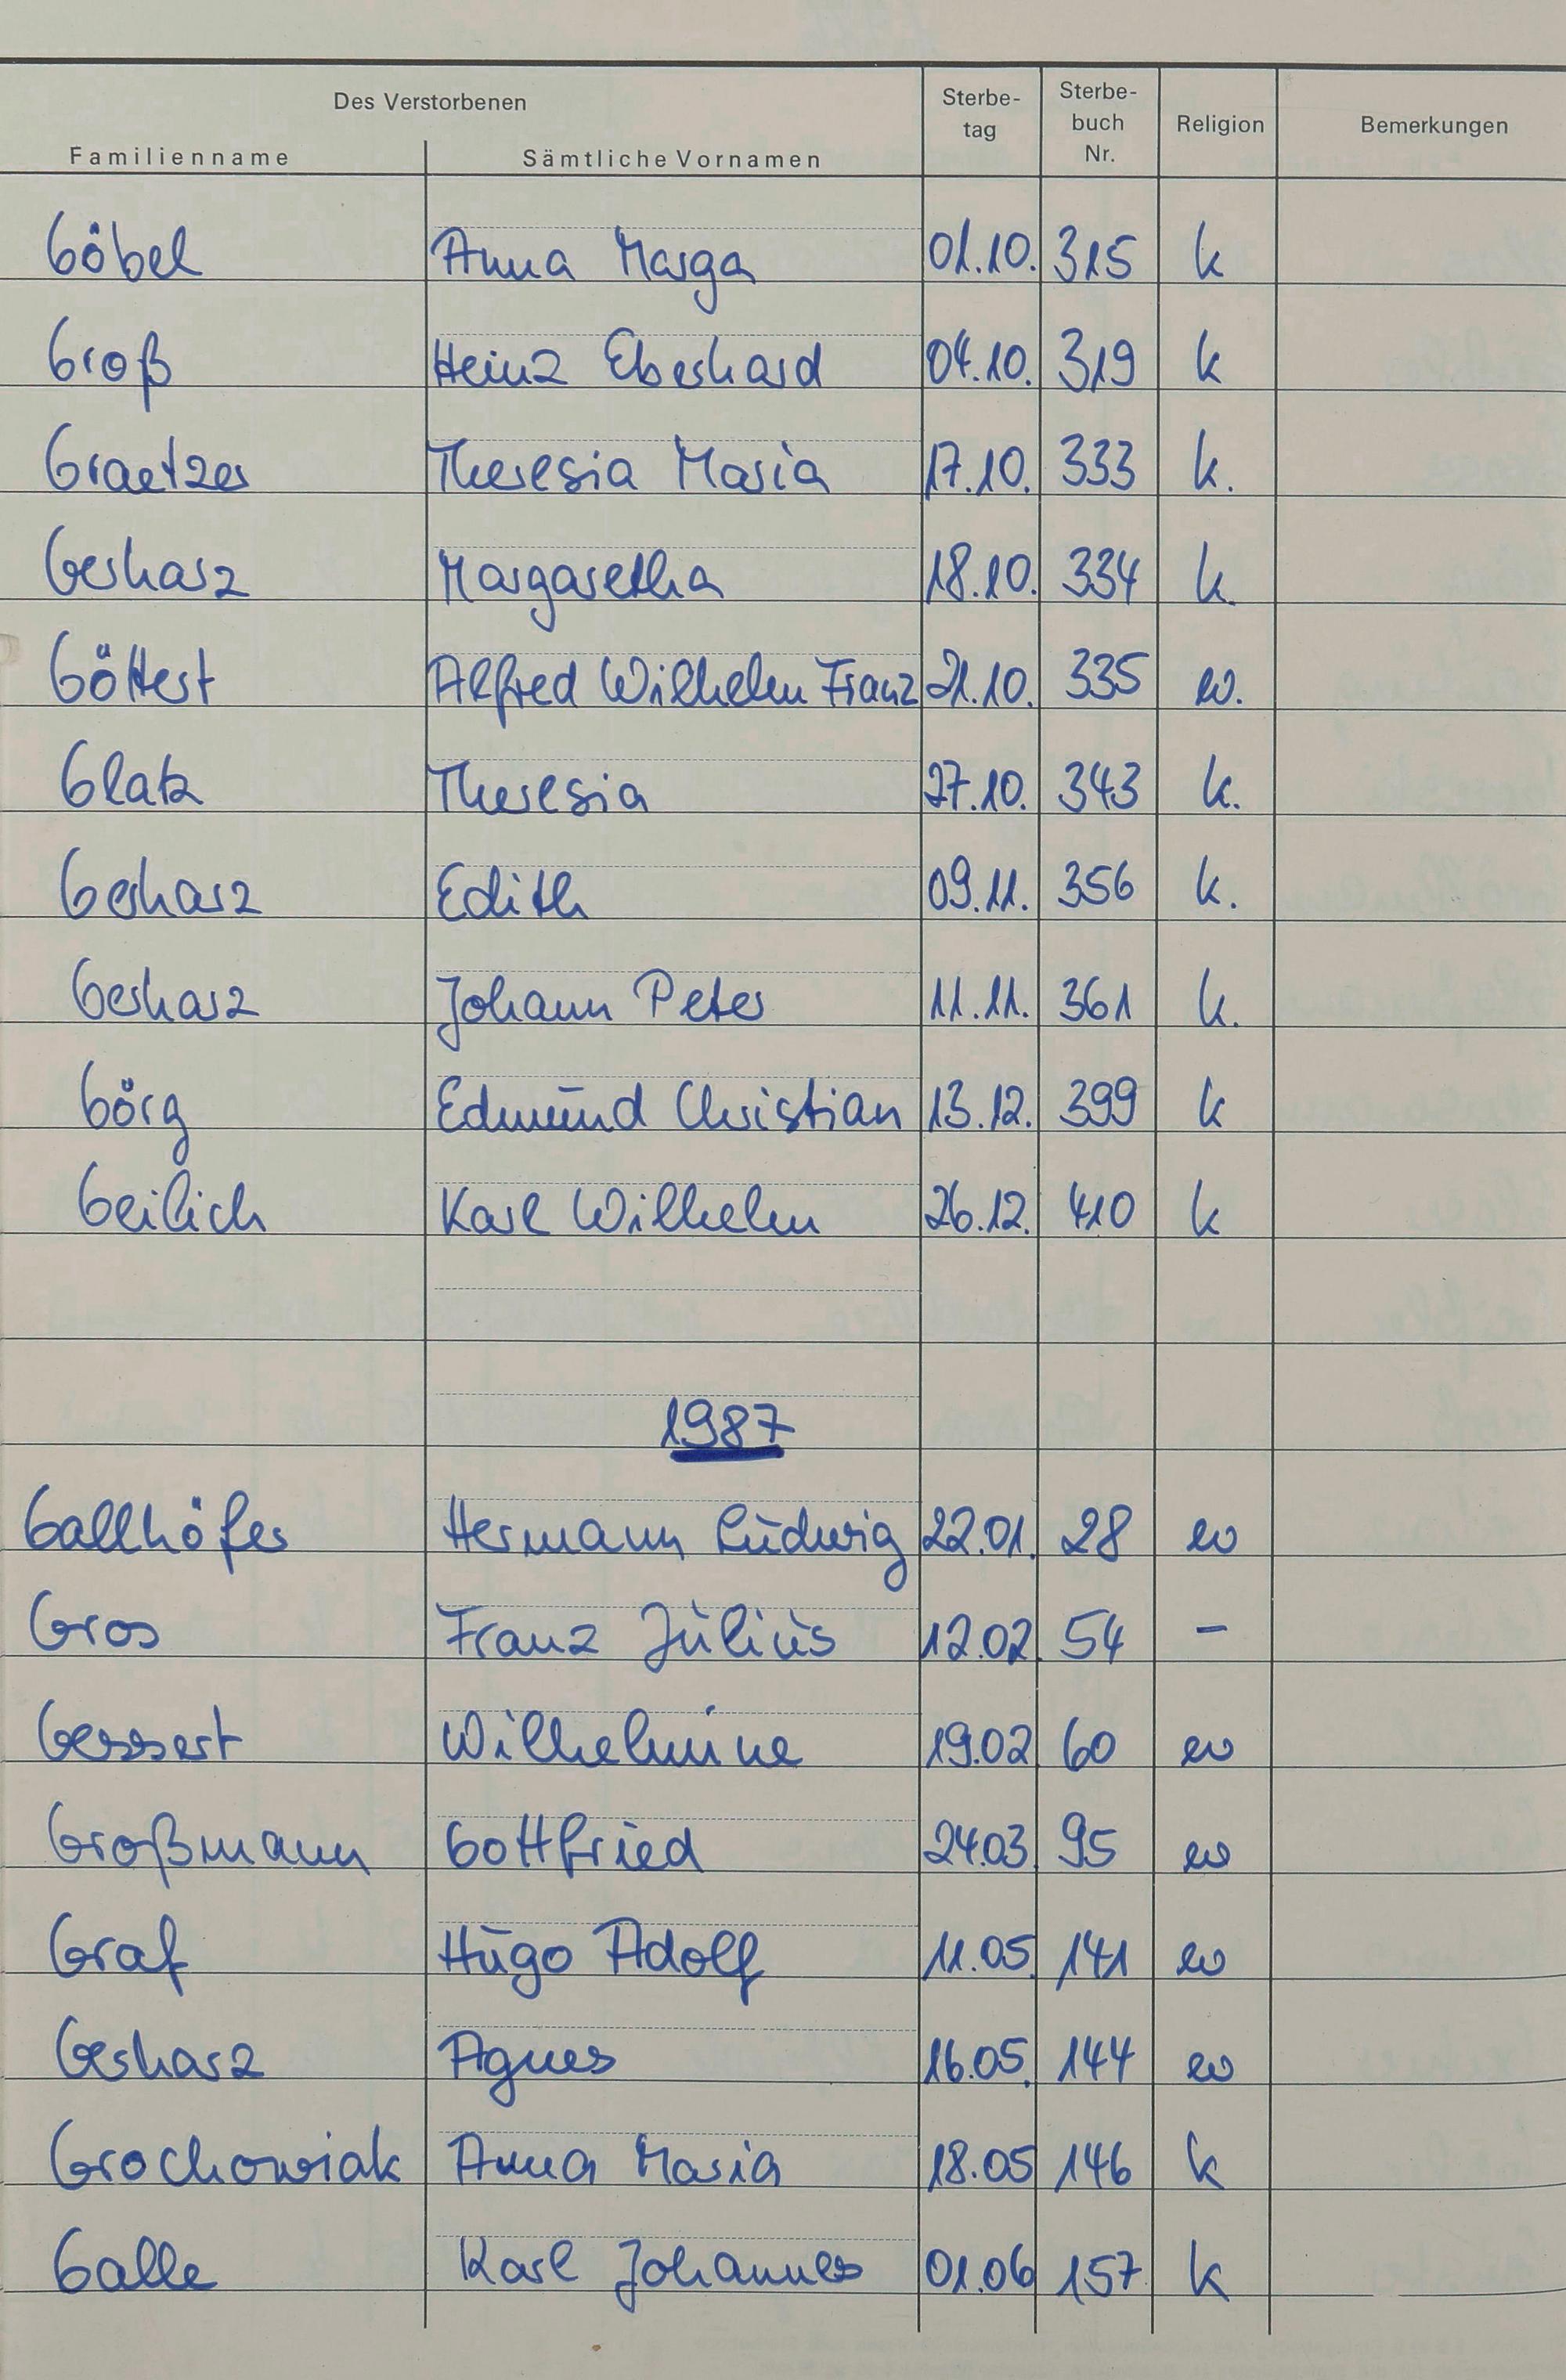 Des Verstorbenen Sterbe-tag Sterbe-buch Nr. Religion Bemerkungen
Familienname Sämtliche Vornamen
Göbel Anna Marga 01.10. 315 k
Groß Heinz Eberhard 04.10. 319 k
Graetzer Theresia Maria 17.10. 333 k.
Gerharz Margaretha 18.10. 334 k.
Göttert Alfred Wilhelm Franz 21.10. 335 ev.
Glatz Theresia 27.10. 343 k.
Gerharz Edith 09.11. 356 k.
Gerharz Johann Peter 11.11. 361 k.
Görg Edmund Christian 13.12. 399 k
Geilich Karl Wilhelm 26.12. 410 k
1987
Gallhöfer Hermann Ludwig 22.01. 28 ev
Gros Franz Julius 12.02. 54 –
Gessert Wilhelmine 19.02. 60 ev
Großmann Gottfried 24.03. 95 ev
Graf Hugo Adolf 11.05. 141 ev
Gerharz Agnes 16.05. 144 ev
Grochowiak Anna Maria 18.05 146 k
Galle Karl Johannes 01.06 157 k